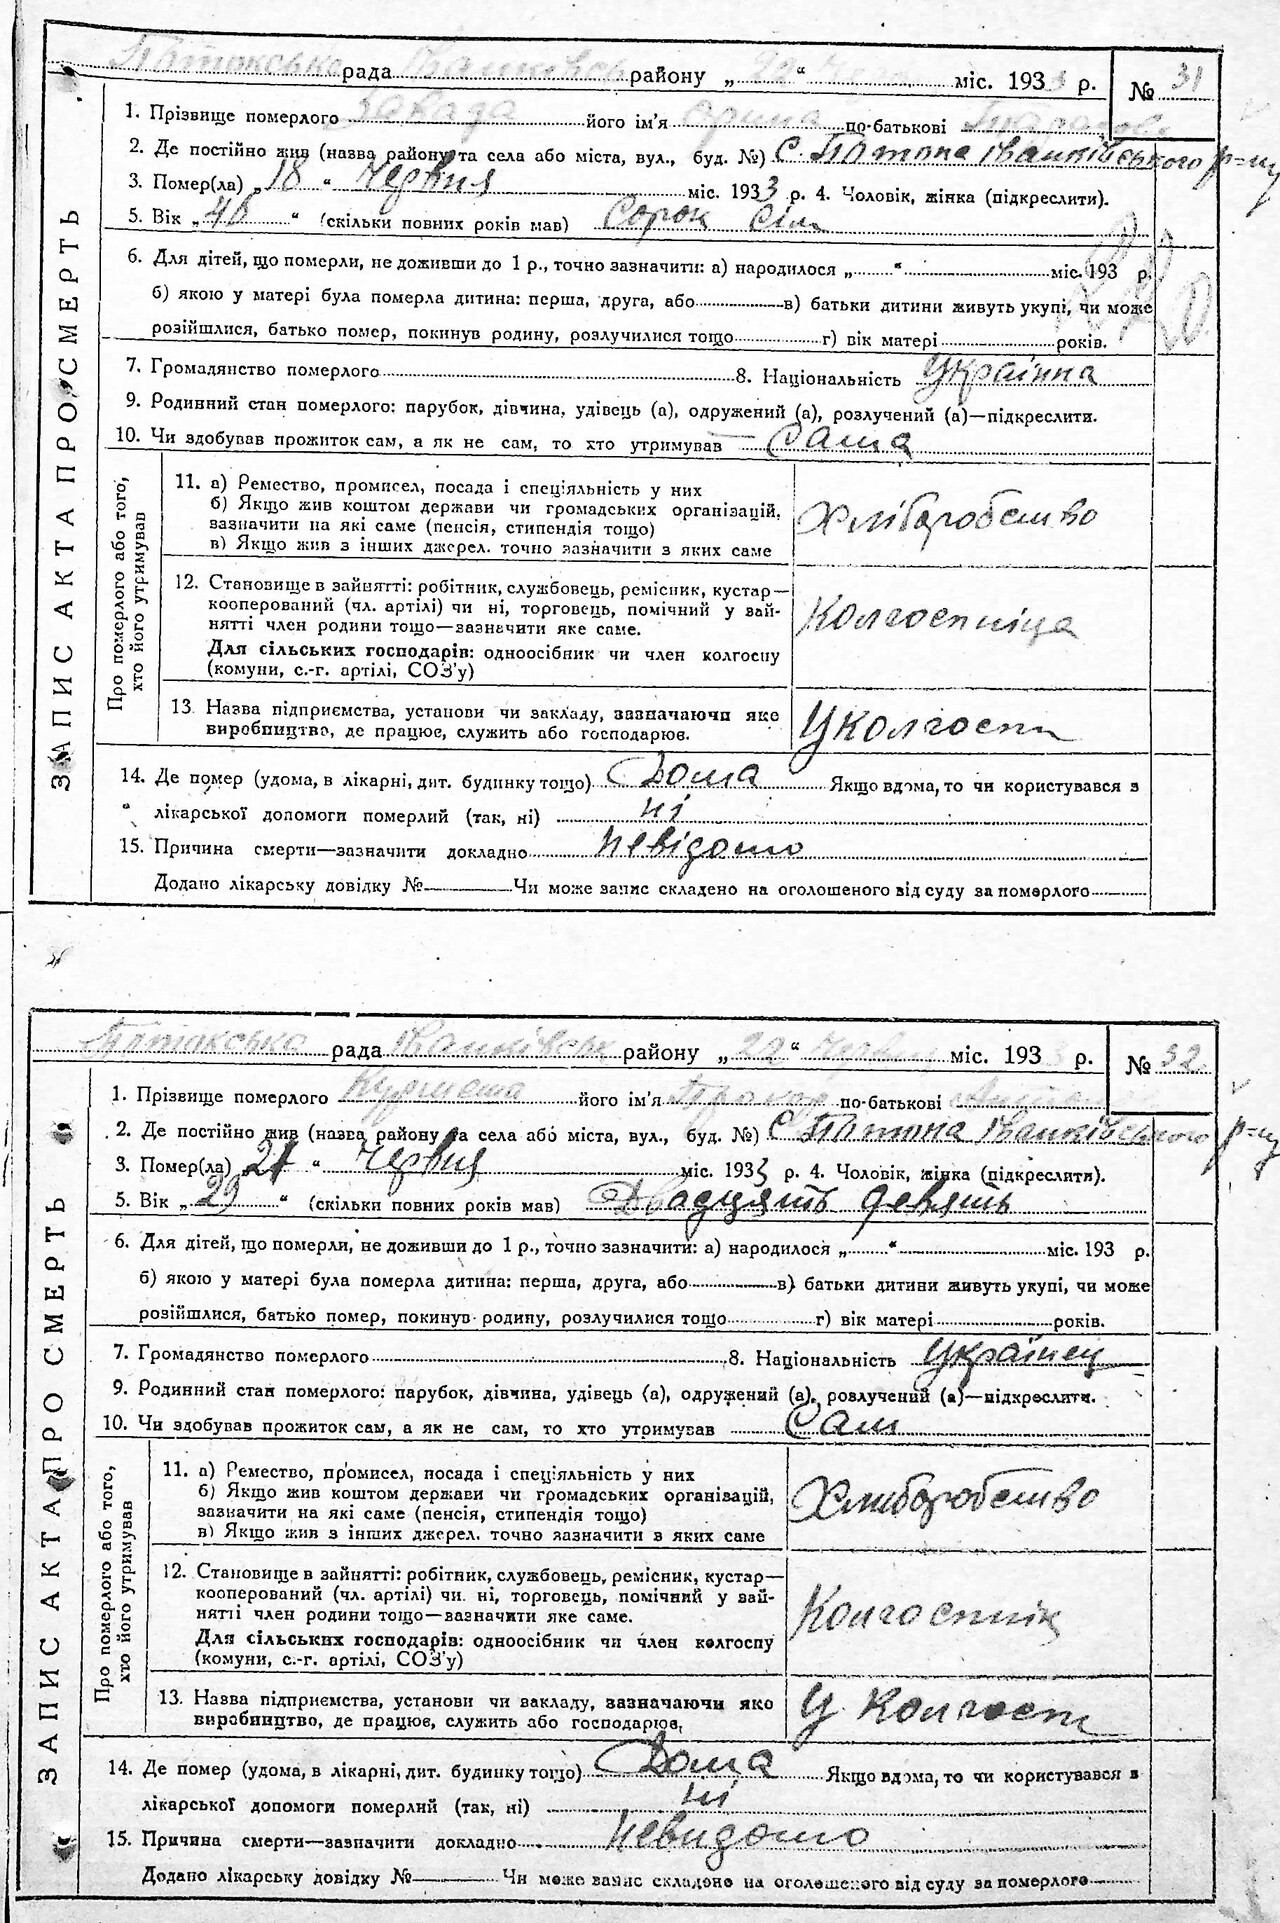 рада району „22“ міс. 1933 р. № 31
1. Прізвище померлого його ім'я по-батькові
2. Де постійно жив (назва району та села або міста, вул., буд. №) С. Патока Іванківського р=ну
3. Помер(ла) „18“ Червня міс. 1933 р. 4. Чоловік, жінка (підкреслити).
5. Вік „ “ (скільки повних років мав) Сорок сім
6. Для дітей, що померли, не доживши до 1 р., точно зазначити: а) народилося „ “ міс. 193 р.
б) якою у матері була померла дитина: перша, друга, або в) батьки дитини живуть укупі, чи може
розійшлися, батько помер, покинув родину, розлучилися тощо г) вік матері років.
7. Громадянство померлого 8. Національність Українка
9. Родинний стан померлого: парубок, дівчина, удівець (а), одружений (а), розлучений (а)—підкреслити.
10. Чи здобував прожиток сам, а як не сам, то хто утримував Сама
11. а) Ремество, промисел, посада і спеціяльність у них
б) Якщо жив коштом держави чи громадських організацій,
зазначити на які саме (пенсія, стипендія тощо)
в) Якщо жив з інших джерел. точно зазначити з яких саме
Хліборобство
12. Становище в зайнятті: робітник, службовець, ремісник, кустар—
кооперований (чл. артілі) чи ні, торговець, помічний у зай-
нятті член родини тощо—зазначити яке саме.
Для сільських господарів: одноосібник чи член колгоспу
(комуни, с.-г. артілі, СОЗ'у)
Колгоспніца
13. Назва підприємства, установи чи закладу, зазначаючи яке
виробництво, де працює, служить або господарює.
У колгоспи
14. Де помер (удома, в лікарні, дит. будинку тощо) Дома Якщо вдома, то чи користувався з
лікарської допомоги померлий (так, ні) ні
15. Причина смерти—зазначити докладно невідомо
Додано лікарську довідку № Чи може запис складено на оголошеного від суду за померлого
ЗАПИС АКТА ПРО СМЕРТЬ
Про померлого або того,
хто його утримував
рада району „22“ Червня міс. 193 р. № 32
1. Прізвище померлого його ім'я Прокор по-батькові
2. Де постійно жив (назва району та села або міста, вул., буд. №) С. Патока Іванківського р=ну
3. Помер(ла) „21“ Червня міс. 1933 р. 4. Чоловік, жінка (підкреслити).
5. Вік „29“ (скільки повних років мав) Двадцять девять
6. Для дітей, що померли, не доживши до 1 р., точно зазначити: а) народилося „ “ міс. 193 р.
б) якою у матері була померла дитина: перша, друга, або в) батьки дитини живуть укупі, чи може
розійшлися, батько помер, покинув родину, розлучилися тощо г) вік матері років.
7. Громадянство померлого 8. Національність Українец
9. Родинний стан померлого: парубок, дівчина, удівець (а), одружений (а), розлучений (а)—підкреслити.
10. Чи здобував прожиток сам, а як не сам, то хто утримував Сам
11. а) Ремество, промисел, посада і спеціяльність у них
б) Якщо жив коштом держави чи громадських організацій,
зазначити на які саме (пенсія, стипендія тощо)
в) Якщо жив з інших джерел. точно зазначити з яких саме
Хлиборобство
12. Становище в зайнятті: робітник, службовець, ремісник, кустар—
кооперований (чл. артілі) чи ні, торговець, помічний у зай-
нятті член родини тощо—зазначити яке саме.
Для сільських господарів: одноосібник чи член колгоспу
(комуни, с.-г. артілі, СОЗ'у)
Колгоспнік
13. Назва підприємства, установи чи закладу, зазначаючи яко
виробництво, де працює, служить або господарює,
У Колгоспі
14. Де помер (удома, в лікарні, дит. будинку тощо) Дома Якщо вдома, то чи користувався з
лікарської допомоги померлий (так, ні) ні
15. Причина смерти—зазначити докладно невидомо
Додано лікарську довідку № Чи може запис складено на оголошеного від суду за померлого
ЗАПИС АКТА ПРО СМЕРТЬ
Про померлого або того,
хто його утримував